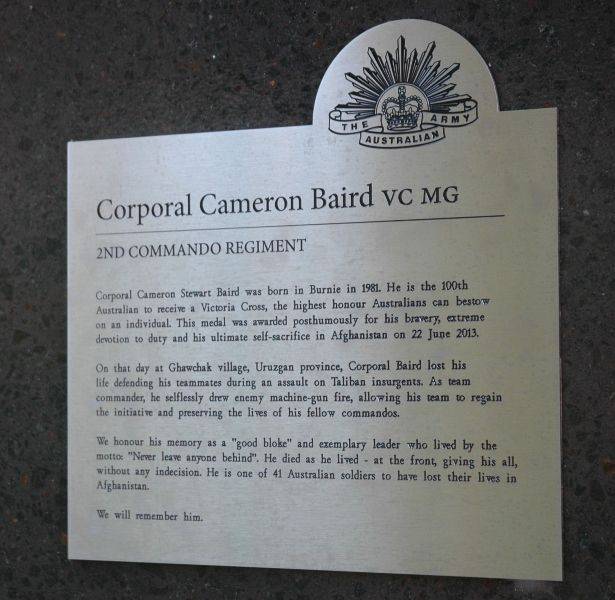 THE AUSTRALIAN ARMY
Corporal Cameron Baird VC MG
2ND COMMANDO REGIMENT
Corporal Cameron Stewart Baird was born in Burnie in 1981. He is the 100th
Australian to receive a Victoria Cross, the highest honour Australians can bestow
on an individual. This medal was awarded posthumously for his bravery, extreme
devotion to duty and his ultimate self-sacrifice in Afghanistan on 22 June 2013.
On that day at Ghawchak village, Uruzgan province, Corporal Baird lost his
life defending his teammates during an assault on Taliban insurgents. As team
commander, he selflessly drew enemy machine-gun fire, allowing his team to regain
the initiative and preserving the lives of his fellow commandos.
We honour his memory as a "good bloke" and exemplary leader who lived by the
motto: "Never leave anyone behind". He died as he lived - at the front, giving his all,
without any indecision. He is one of 41 Australian soldiers to have lost their lives in
Afghanistan.
We will remember him.